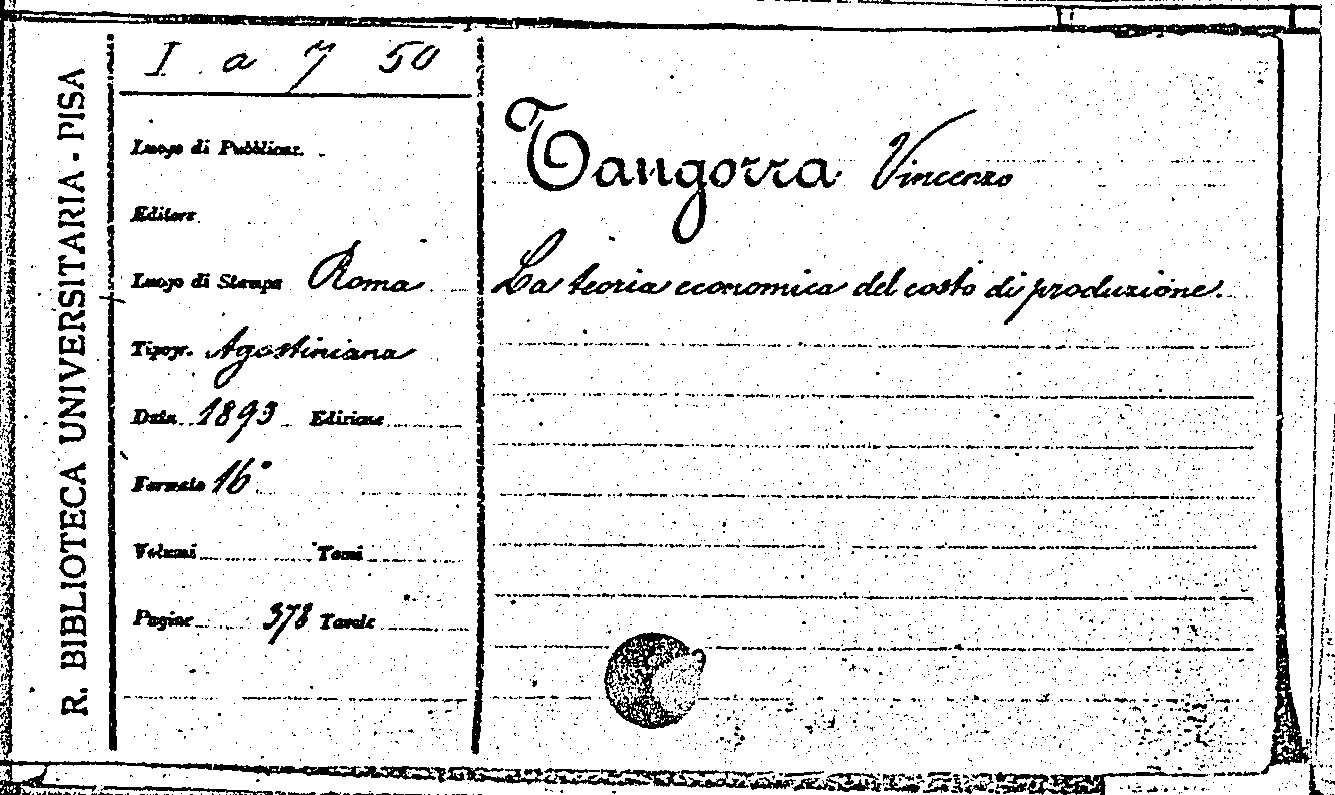 R. BIBLIOTECA UNIVERSITARIA - PISA
I a 7 50
Luogo di Pubblicaz.
Editore
Luogo di Stampa Roma
Tipogr. Agostiniana
Data 1893 Edizione
Formato 16°
Volumi Tomi
Pagine 378 Tavole
Tangorra Vincenzo
La teoria economica del costo di produzione.